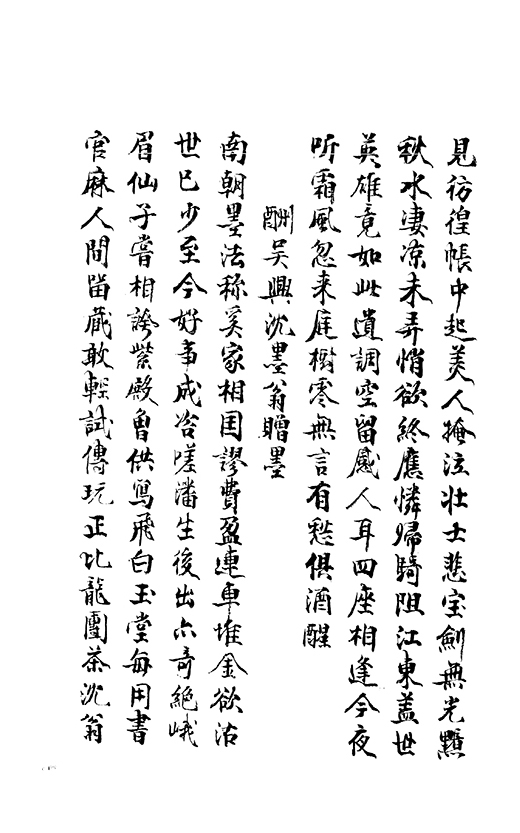 見彷徨帳中起美人掩泣壮士悲宝劍無光黯
秋水淒涼未弄悄欲終應憐歸騎阻江東蓋世
英雄竟如此遺調空留感人耳四座相逢今夜
听霜風忽来庭樹零無言有愁俱酒醒
酬吴興沈墨翁贈墨
南朝墨法称奚家相国謬費盈連車堆金欲沽
世已少至今好事成咨嗟潘生後出亦奇絶峨
眉仙子嘗相誇紫殿曾供寫飛白玉堂每用書
官麻人間留藏敢輕試傳玩正比龍團茶沈翁